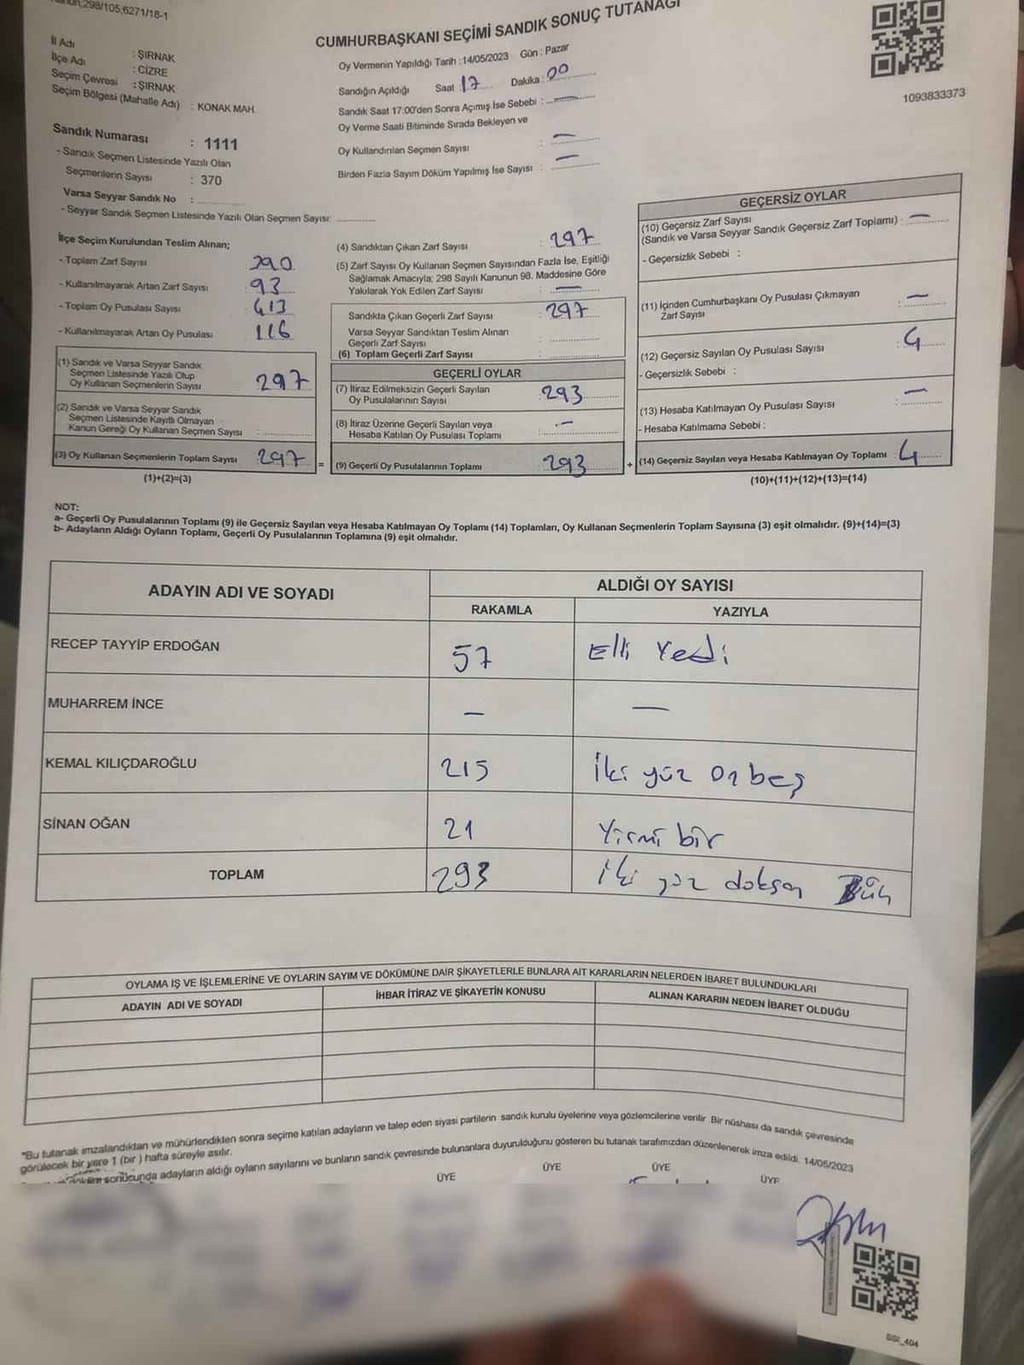 298/105,6271/18-1
CUMHURBAŞKANI SEÇİMİ SANDIK SONUÇ TUTANAĞI
İl Adı : ŞIRNAK
İlçe Adı : CİZRE
Seçim Çevresi : ŞIRNAK
Seçim Bölgesi (Mahalle Adı) : KONAK MAH.
Oy Vermenin Yapıldığı Tarih : 14/05/2023 Gün : Pazar
Sandığın Açıldığı Saat : 17 Dakika : 00
Sandık Saat 17:00'den Sonra Açımış İse Sebebi : —
Oy Verme Saati Bitiminde Sırada Bekleyen ve
Oy Kullandırılan Seçmen Sayısı : —
Birden Fazla Sayım Döküm Yapılmış İse Sayısı : —
1093833373
Sandık Numarası : 1111
- Sandık Seçmen Listesinde Yazılı Olan
Seçmenlerin Sayısı : 370
Varsa Seyyar Sandık No :
- Seyyar Sandık Seçmen Listesinde Yazılı Olan Seçmen Sayısı:
İlçe Seçim Kurulundan Teslim Alınan;
- Toplam Zarf Sayısı 390
- Kullanılmayarak Artan Zarf Sayısı : 93
- Toplam Oy Pusulası Sayısı : 413
- Kullanılmayarak Artan Oy Pusulası : 116
(1) Sandık ve Varsa Seyyar Sandık
Seçmen Listesinde Yazılı Olup
Oy Kullanan Seçmenlerin Sayısı 297
(2) Sandık ve Varsa Seyyar Sandık
Seçmen Listesinde Kayıtlı Olmayan
Kanun Gereği Oy Kullanan Seçmen Sayısı :
(3) Oy Kullanan Seçmenlerin Toplam Sayısı 297 =
(1)+(2)=(3)
(4) Sandıktan Çıkan Zarf Sayısı : 297
(5) Zarf Sayısı Oy Kullanan Seçmen Sayısından Fazla İse, Eşitliği
Sağlamak Amacıyla; 298 Sayılı Kanunun 98. Maddesine Göre
Yakılarak Yok Edilen Zarf Sayısı : —
Sandıkta Çıkan Geçerli Zarf Sayısı : 297
Varsa Seyyar Sandıktan Teslim Alınan
Geçerli Zarf Sayısı :
(6) Toplam Geçerli Zarf Sayısı :
GEÇERLİ OYLAR
(7) İtiraz Edilmeksizin Geçerli Sayılan
Oy Pusulalarının Sayısı 293
(8) İtiraz Üzerine Geçerli Sayılan veya
Hesaba Katılan Oy Pusulası Toplamı : —
(9) Geçerli Oy Pusulalarının Toplamı 293 +
GEÇERSİZ OYLAR
(10) Geçersiz Zarf Sayısı
(Sandık ve Varsa Seyyar Sandık Geçersiz Zarf Toplamı) : —
- Geçersizlik Sebebi :
(11) İçinden Cumhurbaşkanı Oy Pusulası Çıkmayan
Zarf Sayısı : —
(12) Geçersiz Sayılan Oy Pusulası Sayısı : 4
- Geçersizlik Sebebi :
(13) Hesaba Katılmayan Oy Pusulası Sayısı : —
- Hesaba Katılmama Sebebi :
(14) Geçersiz Sayılan veya Hesaba Katılmayan Oy Toplamı : 4
(10)+(11)+(12)+(13)=(14)
NOT:
a- Geçerli Oy Pusulalarının Toplamı (9) ile Geçersiz Sayılan veya Hesaba Katılmayan Oy Toplamı (14) Toplamları, Oy Kullanan Seçmenlerin Toplam Sayısına (3) eşit olmalıdır. (9)+(14)=(3)
b- Adayların Aldığı Oyların Toplamı, Geçerli Oy Pusulalarının Toplamına (9) eşit olmalıdır.
ADAYIN ADI VE SOYADI ALDIĞI OY SAYISI
RAKAMLA YAZIYLA
RECEP TAYYİP ERDOĞAN 57 Elli Yedi
MUHARREM İNCE — —
KEMAL KILIÇDAROĞLU 215 İki yüz on beş
SİNAN OĞAN 21 Yirmi bir
TOPLAM 293 iki yüz doksan
OYLAMA İŞ VE İŞLEMLERİNE VE OYLARIN SAYIM VE DÖKÜMÜNE DAİR ŞİKAYETLERLE BUNLARA AİT KARARLARIN NELERDEN İBARET BULUNDUKLARI
ADAYIN ADI VE SOYADI İHBAR İTİRAZ VE ŞİKAYETİN KONUSU ALINAN KARARIN NEDEN İBARET OLDUĞU
"Bu tutanak imzalandıktan ve mühürlendikten sonra seçime katılan adayların ve talep eden siyasi partilerin sandık kurulu üyelerine veya gözlemcilerine verilir. Bir nüshası da sandık çevresinde
görülecek bir yere 1 (bir) hafta süreyle asılır.
sonucunda adayların aldığı oyların sayılarını ve bunların sandık çevresinde bulunanlara duyurulduğunu gösteren bu tutanak tarafımızdan düzenlenerek imza edildi. 14/05/2023
ÜYE ÜYE ÜYE ÜYE